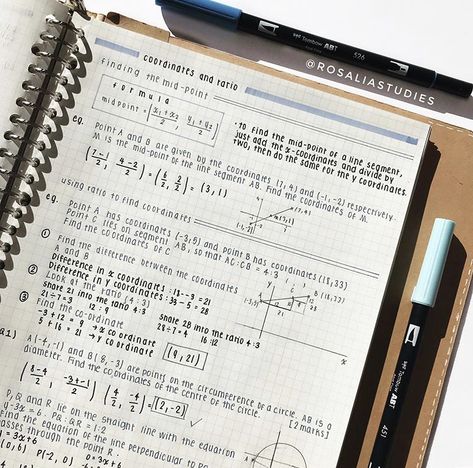 coordinates and ratio
finding the mid-point
formula
midpoint = (x₁+x₂/2, y₁+y₂/2)
:To find the mid-point of a line segment,
just add the x-coordinates and divide by
two, then do the same for the y coordinates.
eg. Point A and B are given by the coordinates (7, 4) and (-1, -2) respectively.
M is the mid-point of the line segment AB. Find the coordinates of M.
(7-1/2, 4-2/2) = (6/2, 2/2) = (3, 1)
using ratio to find coordinates
eg. Point A has coordinates (-3,5) and point B has coordinates (18,33)
Point C lies on segment AB, so that AC:CB = 4:3
Find the coordinates of C.
① Find the difference between the coordinates
A and B
Difference in x coordinates: 18--3 = 21
Difference in y coordinates: 33-5 = 28
② Look at the ratio [4:3]
share 21 into the ratio 4:3
21÷7=3 12:9
share 28 into the ratio 4:3
28÷7=4 16:12
③ Find the co-ordinate
-3+12 = 9 → x coordinate
5+16 = 21 → y coordinate
(9,21)
B (18,33)
(-3,5) A
x
a1) A(-4,-1) and B(8,-3) are points on the circumference of a circle. AB is a
diameter. Find the coordinates of the centre of the circle. [2 marks]
(8-4/2, -3+-1/2) (4/2, -4/2) = (2,-2) ✓
P, Q and R lie on the straight line with the equation
y-3x=6. PQ:QR = 1:2
Find the equation of the line perpendicular to
passes through the point R.
y=3x+6
0=3x+6
P(-2,0)
@ROSALIASTUDIES
Tombow ABT
526
Tombow ABT
451